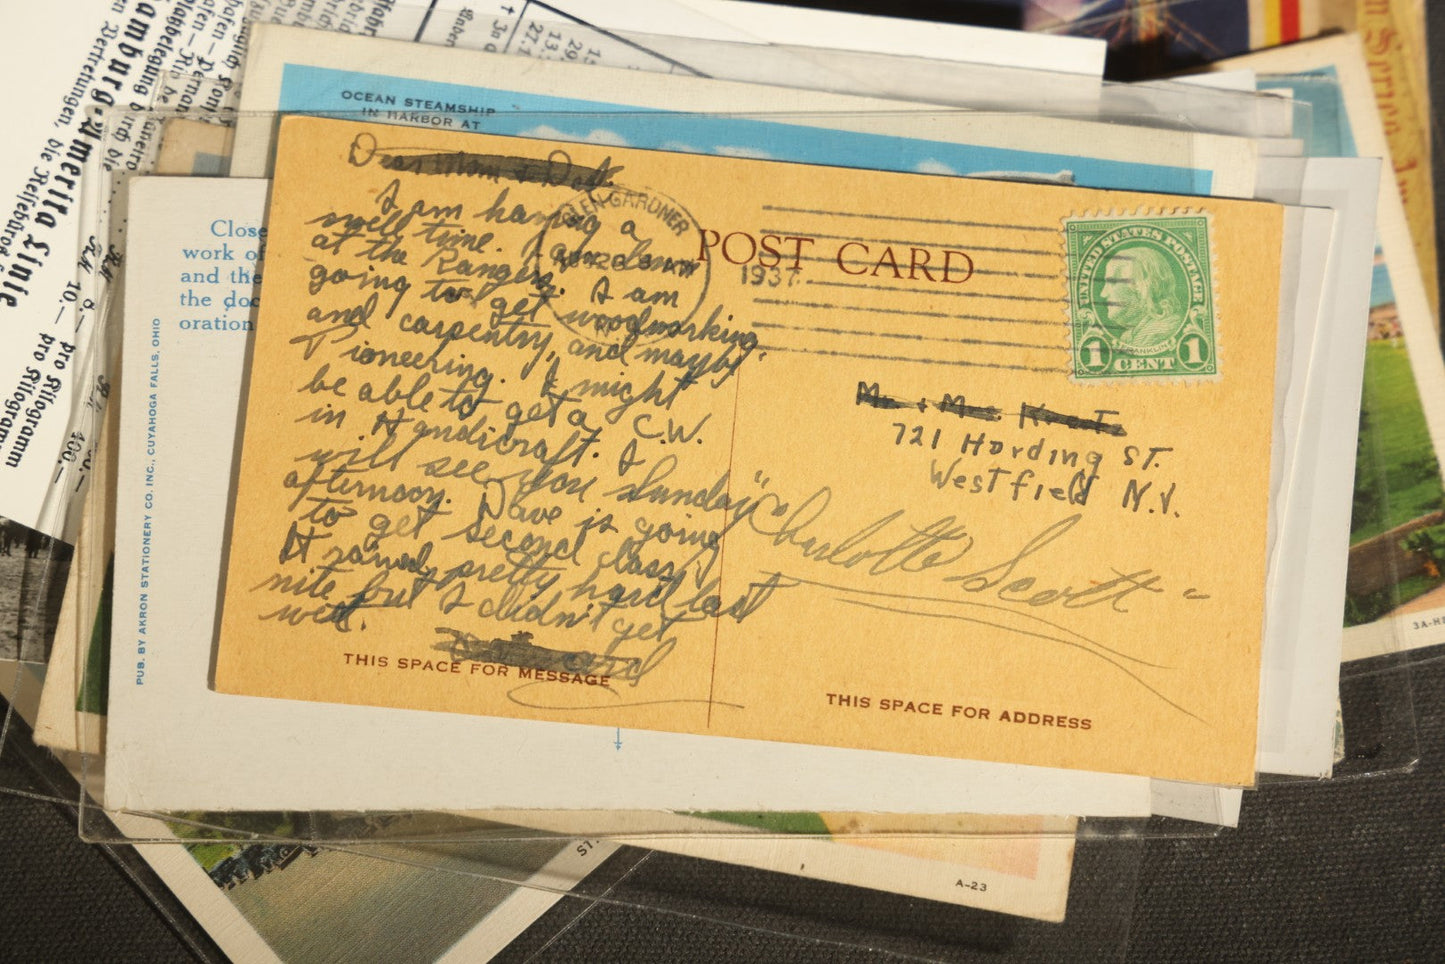 Hamburg-Amerika Linie
pro Kilogramm
pro Kilogramm
OCEAN STEAMSHIP
IN HARBOR AT
Close
work of
and the
the doc
oration
PUB. BY AKRON STATIONERY CO. INC., CUYAHOGA FALLS, OHIO
Dear Mom & Dad.
I am having a
swell time. I am
at the Rangers. I am
going to get woodworking
and carpentry, and maybe
Pioneering. I might
be able to get a C.W.
in Handicraft. I
will see you Sunday
afternoon. Dave is going
to get second class.
It rained pretty hard last
nite but I didn't get
wet.
THIS SPACE FOR MESSAGE
GLEN GARDNER
1937
POST CARD
UNITED STATES POSTAGE
FRANKLIN
1 CENT 1
Mr. & Mrs.
721 Harding ST.
Westfield N.J.
"Charlotte Scott"
THIS SPACE FOR ADDRESS
3A-H
A-23
ST.